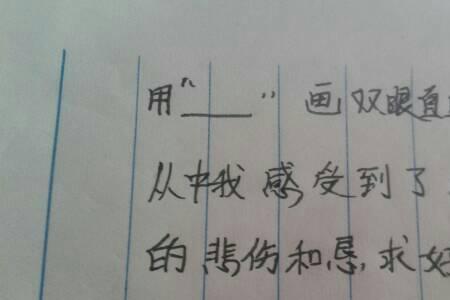 用“____”画双眼直
从中我感受到了
的悲伤和恳,求好